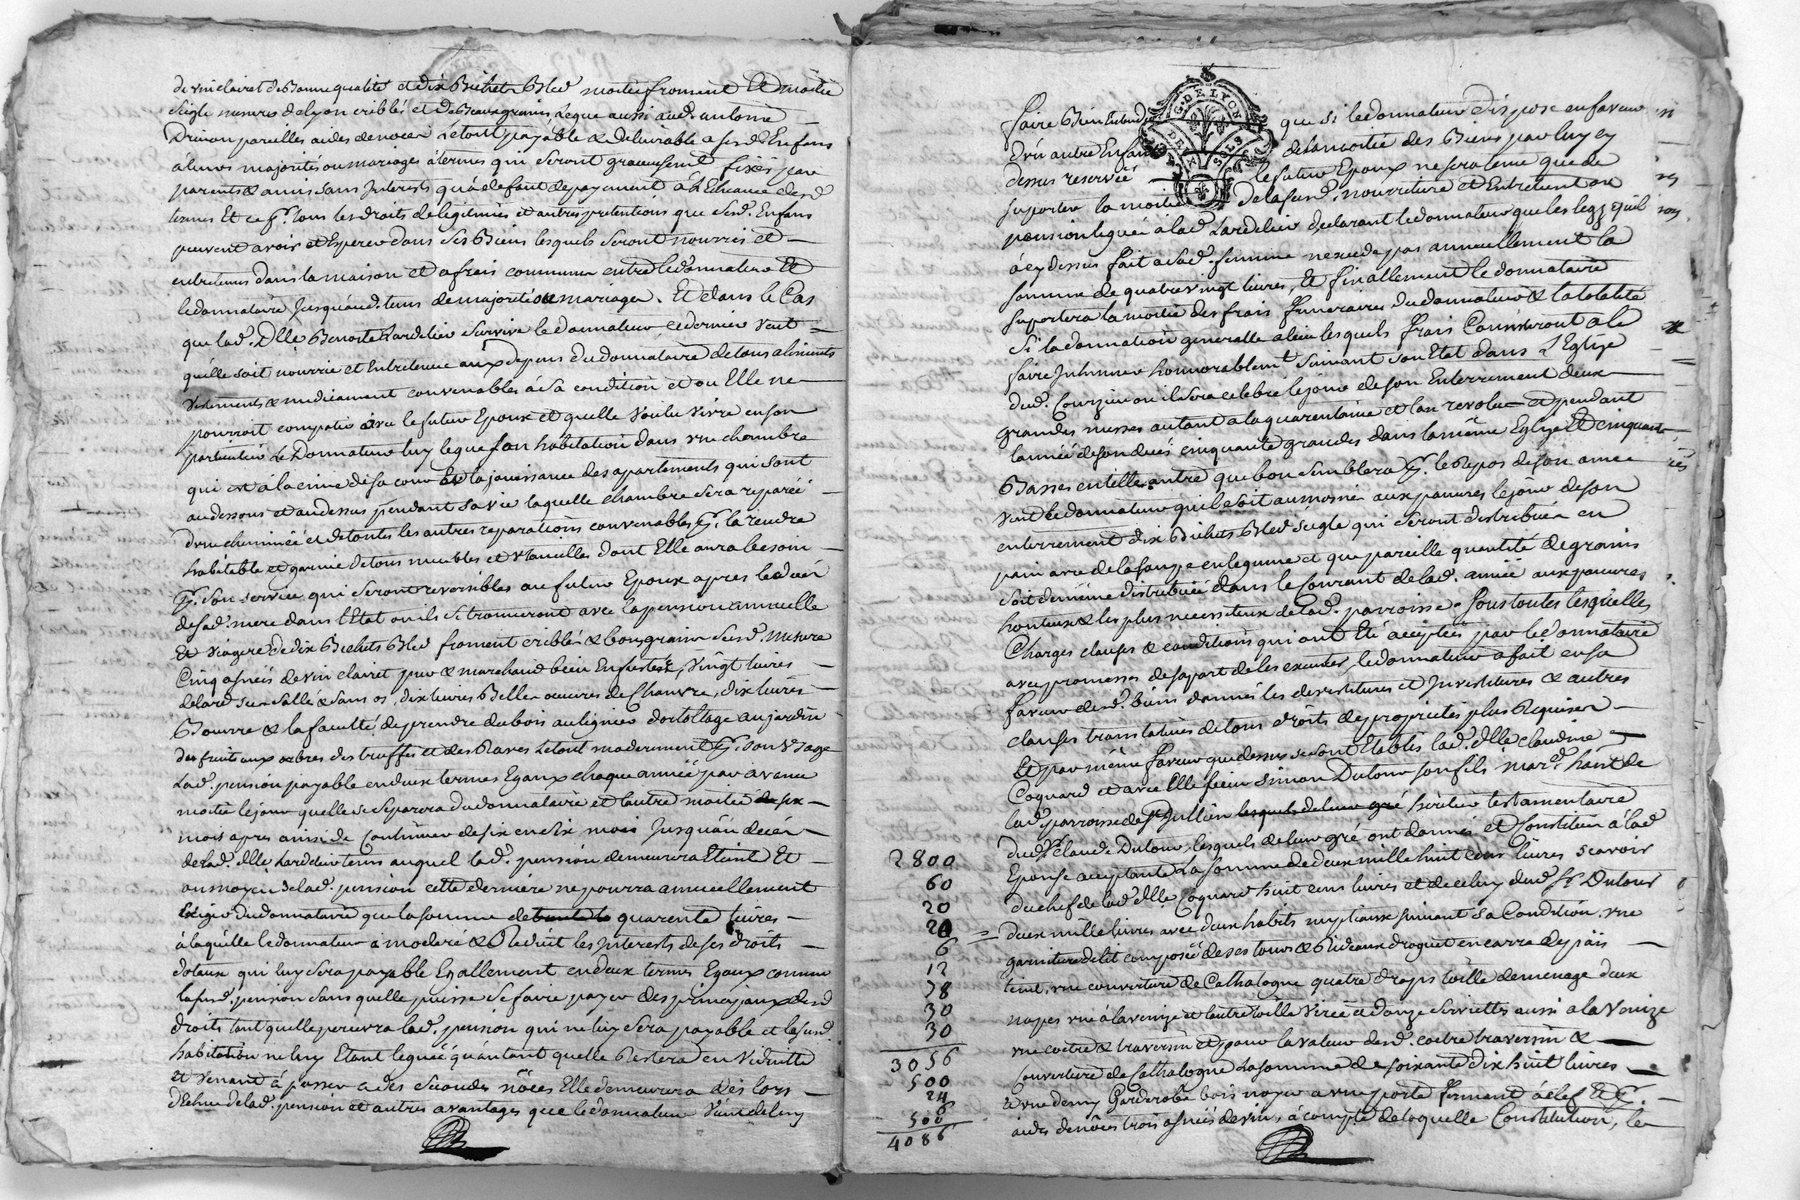 de vin clairet de Bonne qualité et dix Bichets Bled moitié froment Et moitié
seigle mesure de Lyon criblés et de Beau grain, Legue aussi aud. antoine
Drivon pareilles aides de noces Le tout payable & délivrable a sesd. Enfans
a leurs majorité ou mariages à termes qui seront gracieusement fixés par
parents & amis sans Interests qu'à defaut de payement à L'Echeance desd.
termes Et ce pr. tous les droits de legitimes et autres pretentions que sesd. Enfans
peuvent avoir et Esperer dans ses Biens lesquels seront nourris et
entretenus dans la maison et a frais communs entre le donnateur Et
le donnataire Jusqu'aud. tems de majorité ou mariages. Et dans le Cas
que lad. Dlle Benoite Lardelier survive le donnateur ce dernier veut
qu'elle soit nourrie et Entretenue aux depens du donnataire de tous aliments
vetements & medicament convenables à sa condition et ou Elle ne
pourroit compatir avec le futur Epoux et quelle voulu vivre en son
particulier Le Donnateur luy legue son habitation dans une chambre
qui est a la cime de sa cour Et la jouissance des apartements qui sont
au dessous et au dessus pendant sa vie laquelle chambre sera reparée
d'une cheminée et de toutes les autres reparations convenables pr. la rendre
habitable et garnie de tous meubles et utancilles dont Elle aura besoin
pr. son service qui seront reversibles au futur Epoux après le decès
de sad. mere dans l'Etat ou ils se trouveront avec la pension annuelle
Et viagere de dix Bichets Bled froment criblés & bon grain susd. mesure
Cinq asnées de vin clairet pur & marchand bien Enfusté, vingt livres
de lard sec sallé & sans os, dix livres Belle oeuvres de Chanvre, dix livres
Beurre & la faculté de prendre du bois au lignier d'ortollage au jardin
des fruits aux arbres des truffes et des Raves Le tout moderement pr. son usage
Lad. pension payable en deux termes Egaux chaque année par avance
moitié le jour quelle se separera du donnataire et l'autre moitié six
mois apres ainsi de Continuer de six en six mois Jusqu'au decès
de lad. dlle Lardelier tems auquel lad. pension demeurera Eteinte Et
au moyen de lad. pension cette derniere ne pourra annuellement
Exiger du donnataire que la somme de quarente livres
à laquelle le donnateur a moderé & Reduit les Interests de ses droits
dotaux qui luy sera payable Egallement en deux termes Egaux comme
la susd. pension sans quelle puisse se faire payer des principaux desd.
droits tant quelle percevra lad. pension qui ne luy sera payable et la susd.
habitation ne luy Etant leguée qu'autant quelle Restera en Viduité
et venant à passer a des secondes nôces Elle demeurera dès lors
dechue de lad. pension et autres avantages que le donnateur vient de luy
G. DE LYON
DEUX SOLS
faire Bien Entendu que si le donnateur dispose en faveur
d'un autre Enfant de la moitié des Biens par luy cy
dessus reservée le futur Epoux ne sera tenu que de
suporter la moitié de la susd. nourriture et Entretient ou
pension leguée à lad. Lardelier declarant le donnateur que les legs qu'il
à cy dessus fait a sad. femme n'excede pas annuellement la
somme de quatre vingt livres, Et finallement le donnataire
suportera la moitié des frais funeraires du donnateur & la totalité
si la donnation generalle a lieu lesquels frais Consisteront a le
faire Inhumer honnorablemt. suivant son Etat dans L'Eglise
dud. Courzieu ou il sera celebré le jour de son Enterrement deux
grandes messes autant a la quarentaine et l'an revolu et pendant
l'année de son decès cinquante grandes dans la même Eglise Et cinquante
Basses en telle autre que bon semblera pr. le Repos de son ame
veut le donnateur qu'il soit aumoné aux pauvres le jour de son
enterrement dix Bichets Bled seigle qui seront distribués en
pain avec de la soupe en legume et que pareille quantité de grains
soit de même distribuée dans le Courant de lad. année aux pauvres
honteux & les plus necessiteux de lad. parroisse. Sous toutes lesquelles
Charges clauses & conditions qui ont Eté acceptées par le donnataire
avec promesses de sa part de les executer, le donnateur a fait en sa
faveur desd. biens donnés les devestitures et Investitures & autres
clauses translatives de tous droits de propriétés plus Requises
Et par même faveur que dessus se sont Etablis lad. dlle claudine
Coquard et avec Elle sieur Simon Dutour son fils mard. hant. de
lad. parroisse de St. Jullien heritier testamentaire
dud. Sr. Claude Dutour, lesquels de leur gré ont donné et Constitué à lad.
Epouse acceptante La somme de deux mille huit cens livres scavoir
du chef de lad. dlle Coquard huit cens livres et de celuy dud. Sr. Dutour
deux mille livres avec deux habits nuptiaux suivant sa Condition, une
garniture de lit composée de ses tours & Rideaux droguet en carra de païs
teint, une couverture de Cathalogne quatre draps toille de menage deux
napes une à la venize et l'autre toille Virée et douze serviettes aussi a la Venize
une coetre & traversin et pour la valeur desd. coetre traversin &
couverture de Cathalogne La somme de soixante dix huit livres
et une demy Garderobe bois noyer a une porte fermant à clef Et pr.
aides de nôces trois asnées de vin, à compte de laquelle Constitution, le
2800
60
20
20
6
12
78
30
30
3056
500
24
6
500
4086